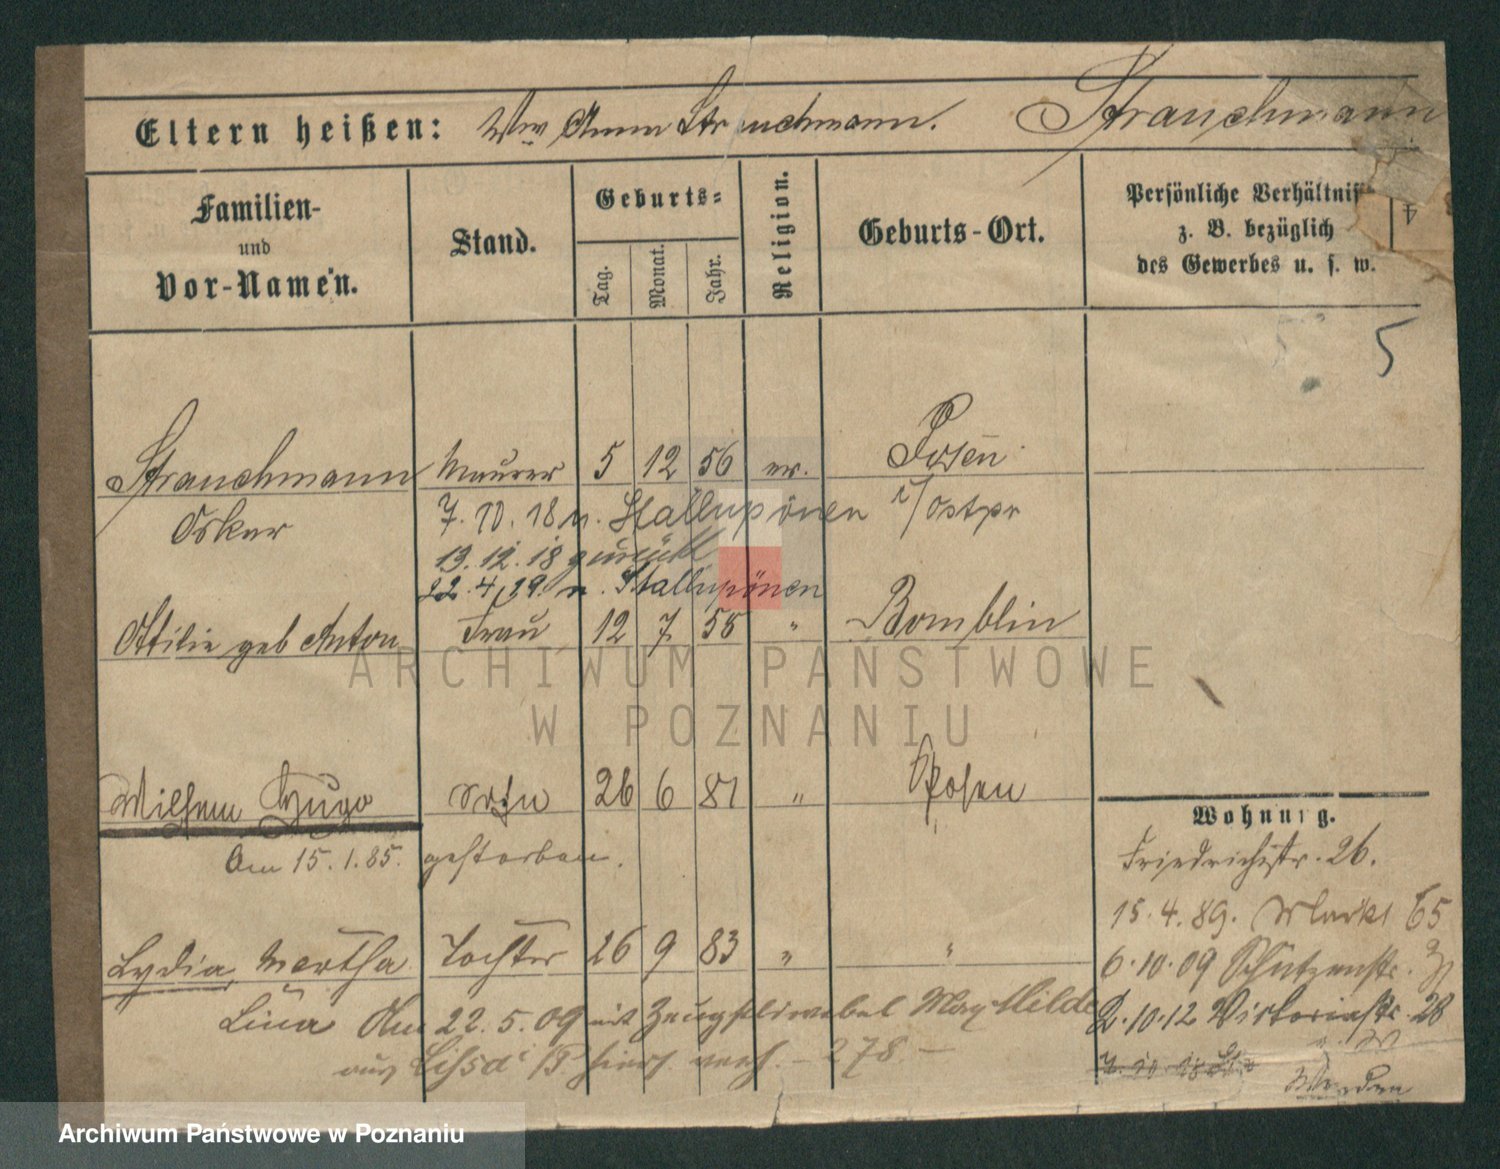 Eltern heißen: Ww Anna Strauchmann. Strauchmann
Familien-
und
Vor-Namen.
Stand.
Geburts-
Tag.
Monat.
Jahr.
Religion.
Geburts-Ort.
Persönliche Verhältniss
z. B. bezüglich
des Gewerbes u. s. w.
4
5
Strauchmann Maurer 5 12 56 ev. Posen
Oskar 7.10.18 n. Stallupönen i/Ostpr
13.12.18 zurück
22.4.19. n. Stallupönen
Ottilie geb Anton Frau 12 7 58 " Bomblin
Wilhelm Hugo Sohn 26 6 81 " Posen
Am 15.1.85. gestorben.
Lydia, Martha Tochter 26 9 83 " "
Lina Am 22.5.09 mit Max Hilde
aus Lissa i/P. hier verh. - 278 -
Wohnung.
Friedrichstr. 26.
15.4.89. Markt 65
6.10.09 Schützenstr.
2.10.12 Viktoriastr. 28
7.10.18
ARCHIWUM PAŃSTWOWE
W POZNANIU
Archiwum Państwowe w Poznaniu